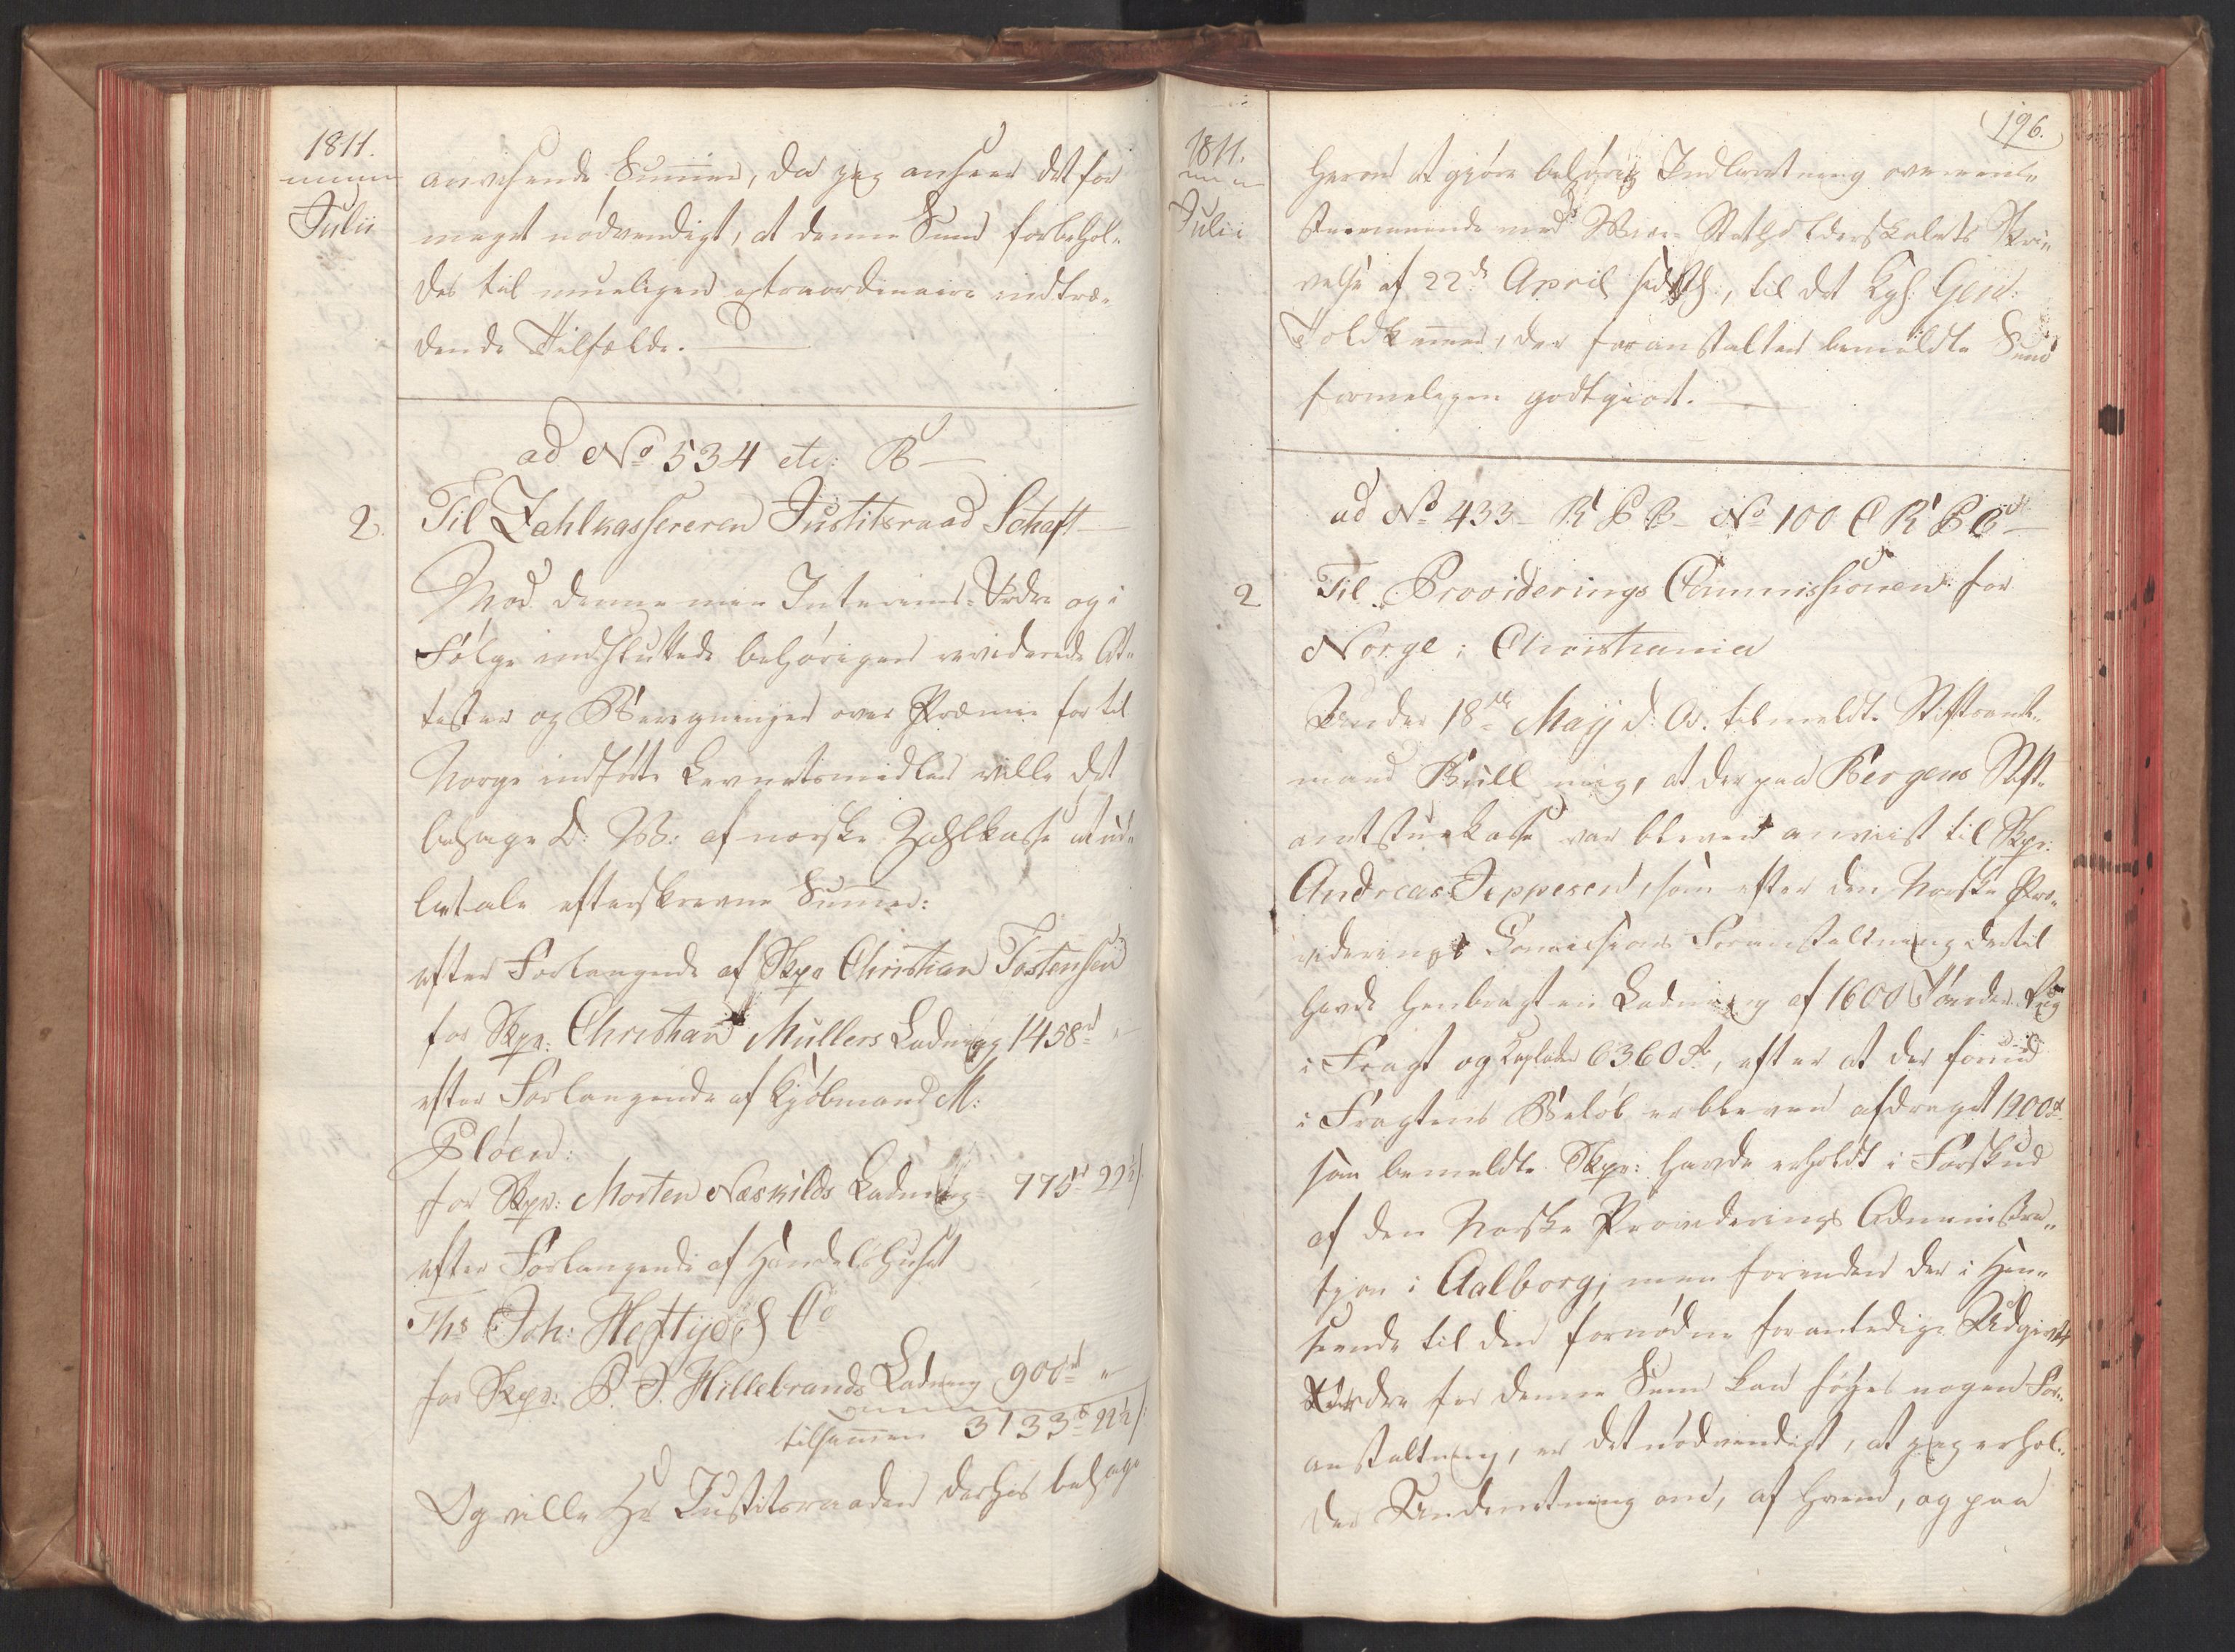 1811.
Julii
anvisende Summer, da jeg anseer det for
meget nödvendigt, at denne Sum forbehol-
des til mueligen extraordinaire indtræ-
dende Tilfælde.
ad No 534 etc: B
2.
Til Zahlkassereren Justitsraad Schaft
Mod denne min Interims-Ordre og i
Følge indsluttede behörigen reviderede At-
tester og Beregninger over Præmie for til
Norge indførte Levnetsmidler ville det
behage D: W: af norske Zahlkasse at ud-
betale efterskrevne Summer:
efter Forlangende af Skpr Christian Tostensen
for Skpr: Christian Mullers Ladning 1458rd "
efter Forlangende af Kjöbmand M:
Pløen:
for Skpr: Morten Næskilds Ladning 775rd 22½/
efter Forlangende af Handelshuset
Ths Joh: Heftye & Co
for Skpr: P. J. Hillebrands Ladning 900rd "
tilsammen 3133rd 22½/
Og ville Hr Justitsraaden derhos behage
1811.
Julii
196.
herom at gjöre behørig Indberetning overeens-
stemmende med Vice-Statholderskabets Skri-
velse af 22de April sidstl:, til det Kgl: Genl:
Toldkamer, der foranstalter bemeldte Sum
formeligen godtgiort.
ad No 433 R P B No 100 C R P C
2
Til Providerings Commissionen for
Norge i Christiania
Under 18de Maij d: A. tilmeldte Stiftamt-
mand Bull mig, at der paa Bergens Stift-
amtstuekasse var bleven anviist til Skpr:
Andreas Jeppesen, som efter den Norske Pro-
viderings Commissions Foranstaltning dertil
havde henbragt en Ladning af 1600 Tønder Rug
i Fragt og Kaplake 6360rd, efter at der forud
i Fragtens Belöb er bleven afdraget 1900rd
som bemeldte Skpr: havde erholdt i Forskud
af den Norske Provideringes Administra-
tion i Aalborg; men forinden der i Hen-
seende til den fornødne foranledige Udgivts
Ordre for denne Sum kan föjes nogen For-
anstaltning, er det nödvendigt, at jeg erhol-
der Underretning om, af hvem, og paa